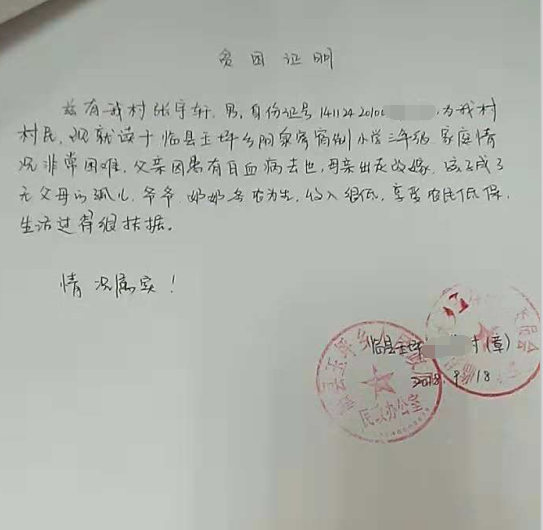 贫困证明
兹有我村张宇轩,男,身份证号 141124 20100 为我村
村民,现就读于临县玉坪乡阳泉寄宿制小学三年级,家庭情
况非常困难,父亲因患有白血病去世,母亲出走改嫁,孩子成了
无父母的孤儿,爷爷、奶奶务农为生,收入很低,享受农民低保,
生活过得很拮据。
情况属实!
临县玉坪 村(章)
2018. 9.18
临县玉坪乡
民政办公室